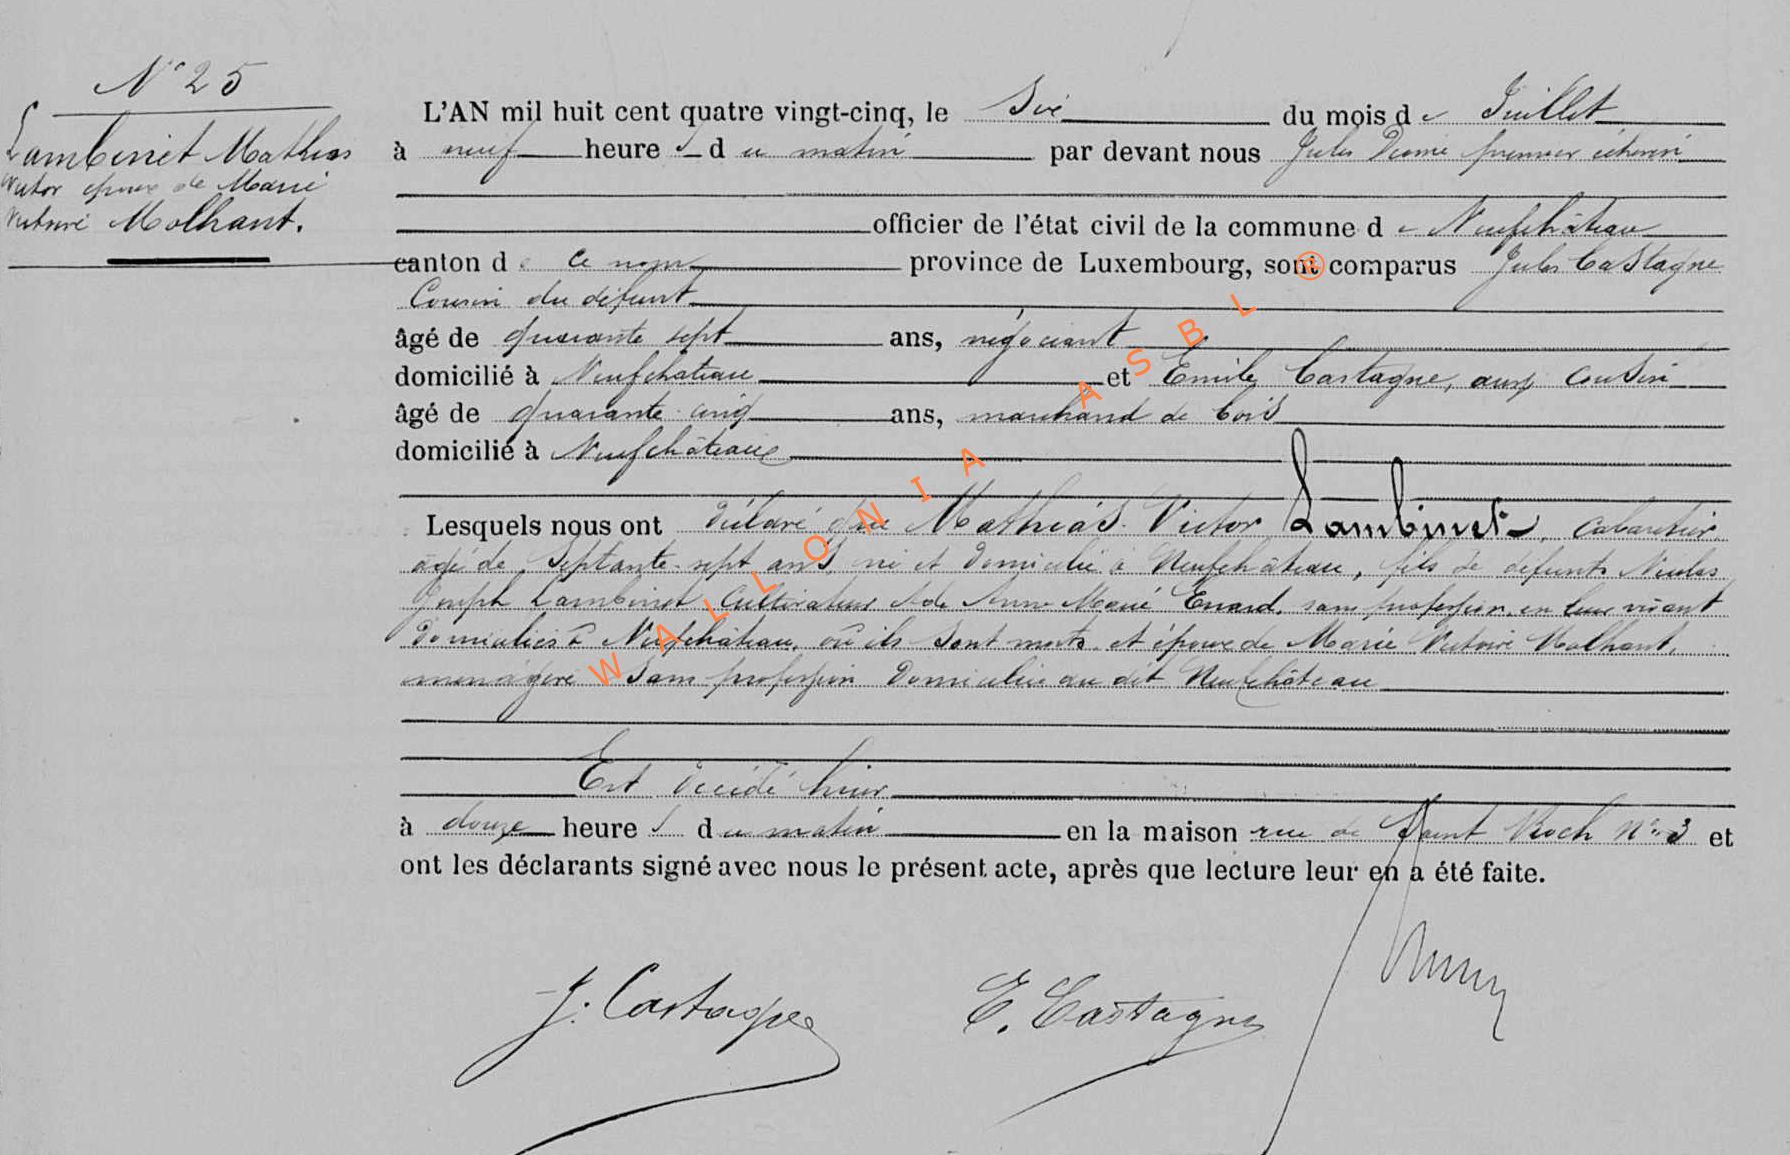 N° 25
Lambinet Mathias
Victor époux de Marie
Victoire Molhant.
L'AN mil huit cent quatre vingt-cinq, le Six du mois de Juillet
à neuf heures du matin par devant nous Jules premier échevin
officier de l'état civil de la commune de Neufchâteau
canton de ce nom province de Luxembourg, sont comparus Jules Castagne
Cousin du défunt
âgé de quarante sept ans, négociant
domicilié à Neufchateau et Emile Castagne, aussi cousin
âgé de quarante-cinq ans, marchand de bois
domicilié à Neufchâteau
Lesquels nous ont déclaré que Mathias Victor Lambinet, cabaretier,
âgé de septante-sept ans, né et domicilié à Neufchâteau, fils de défunts Nicolas
Joseph Lambinet, cultivateur et de Anne Marie Enard, sans profession, en leur vivant
domiciliés à Neufchâteau, où ils sont morts, et époux de Marie Victoire Molhant,
ménagère sans profession domiciliée au dit Neufchâteau
Est décédé hier
à douze heures du matin en la maison rue de Saint Roch N° 3 et
ont les déclarants signé avec nous le présent acte, après que lecture leur en a été faite.
J. Castagne E. Castagne
WALLONIA ASBL ®